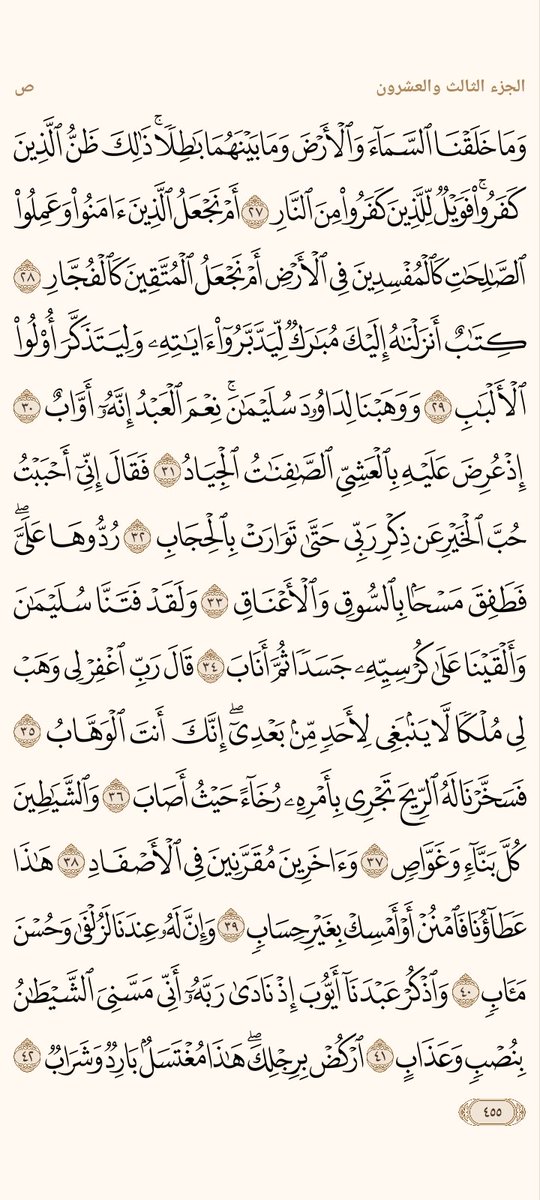 الجزء الثالث والعشرون
ص
وَمَا خَلَقْنَا ٱلسَّمَآءَ وَٱلْأَرْضَ وَمَا بَيْنَهُمَا بَٰطِلًاۚ ذَٰلِكَ ظَنُّ ٱلَّذِينَ
كَفَرُواْۚ فَوَيْلٌ لِّلَّذِينَ كَفَرُواْ مِنَ ٱلنَّارِ ٢٧ أَمْ نَجْعَلُ ٱلَّذِينَ ءَامَنُواْ وَعَمِلُواْ
ٱلصَّٰلِحَٰتِ كَٱلْمُفْسِدِينَ فِى ٱلْأَرْضِ أَمْ نَجْعَلُ ٱلْمُتَّقِينَ كَٱلْفُجَّارِ ٢٨
كِتَٰبٌ أَنزَلْنَٰهُ إِلَيْكَ مُبَٰرَكٌ لِّيَدَّبَّرُوٓاْ ءَايَٰتِهِۦ وَلِيَتَذَكَّرَ أُوْلُواْ
ٱلْأَلْبَٰبِ ٢٩ وَوَهَبْنَا لِدَاوُۥدَ سُلَيْمَٰنَۚ نِعْمَ ٱلْعَبْدُ إِنَّهُۥٓ أَوَّابٌ ٣٠
إِذْ عُرِضَ عَلَيْهِ بِٱلْعَشِىِّ ٱلصَّٰفِنَٰتُ ٱلْجِيَادُ ٣١ فَقَالَ إِنِّىٓ أَحْبَبْتُ
حُبَّ ٱلْخَيْرِ عَن ذِكْرِ رَبِّى حَتَّىٰ تَوَارَتْ بِٱلْحِجَابِ ٣٢ رُدُّوهَا عَلَىَّۖ
فَطَفِقَ مَسْحًۢا بِٱلسُّوقِ وَٱلْأَعْنَاقِ ٣٣ وَلَقَدْ فَتَنَّا سُلَيْمَٰنَ
وَأَلْقَيْنَا عَلَىٰ كُرْسِيِّهِۦ جَسَدًا ثُمَّ أَنَابَ ٣٤ قَالَ رَبِّ ٱغْفِرْ لِى وَهَبْ
لِى مُلْكًا لَّا يَنۢبَغِى لِأَحَدٍ مِّنۢ بَعْدِىٓۖ إِنَّكَ أَنتَ ٱلْوَهَّابُ ٣٥
فَسَخَّرْنَا لَهُ ٱلرِّيحَ تَجْرِى بِأَمْرِهِۦ رُخَآءً حَيْثُ أَصَابَ ٣٦ وَٱلشَّيَٰطِينَ
كُلَّ بَنَّآءٍ وَغَوَّاصٍ ٣٧ وَءَاخَرِينَ مُقَرَّنِينَ فِى ٱلْأَصْفَادِ ٣٨ هَٰذَا
عَطَآؤُنَا فَٱمْنُنْ أَوْ أَمْسِكْ بِغَيْرِ حِسَابٍ ٣٩ وَإِنَّ لَهُۥ عِندَنَا لَزُلْفَىٰ وَحُسْنَ
مَـَٔابٍ ٤٠ وَٱذْكُرْ عَبْدَنَآ أَيُّوبَ إِذْ نَادَىٰ رَبَّهُۥٓ أَنِّى مَسَّنِىَ ٱلشَّيْطَٰنُ
بِنُصْبٍ وَعَذَابٍ ٤١ ٱرْكُضْ بِرِجْلِكَۖ هَٰذَا مُغْتَسَلٌۢ بَارِدٌ وَشَرَابٌ ٤٢
٤٥٥